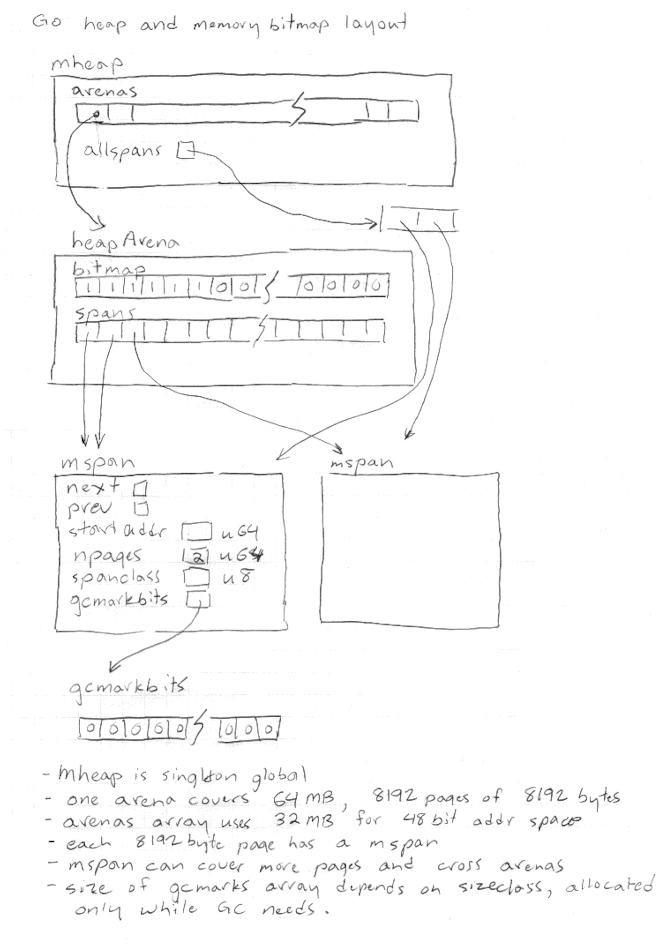 Go heap and memory bitmap layout
mheap
arenas
allspans
heapArena
bitmap
1 1 1 1 1 1 0 0 0 0 0 0
spans
mspan
mspan
next
prev
start addr u64
npages 2 u64
spanclass u8
gcmarkbits
gcmarkbits
0 0 0 0 0 0 0 0
- Mheap is singleton global
- one arena covers 64 MB, 8192 pages of 8192 bytes
- arenas array uses 32 MB for 48 bit addr space
- each 8192 byte page has a mspan
- mspan can cover more pages and cross arenas
- size of gcmarks array depends on sizeclass, allocated
only while GC needs.